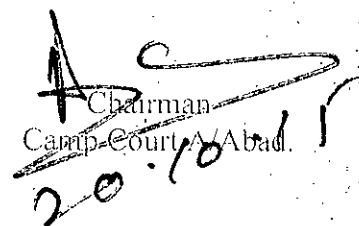 Chairman
Camp Court A/Abad.
20.10.11